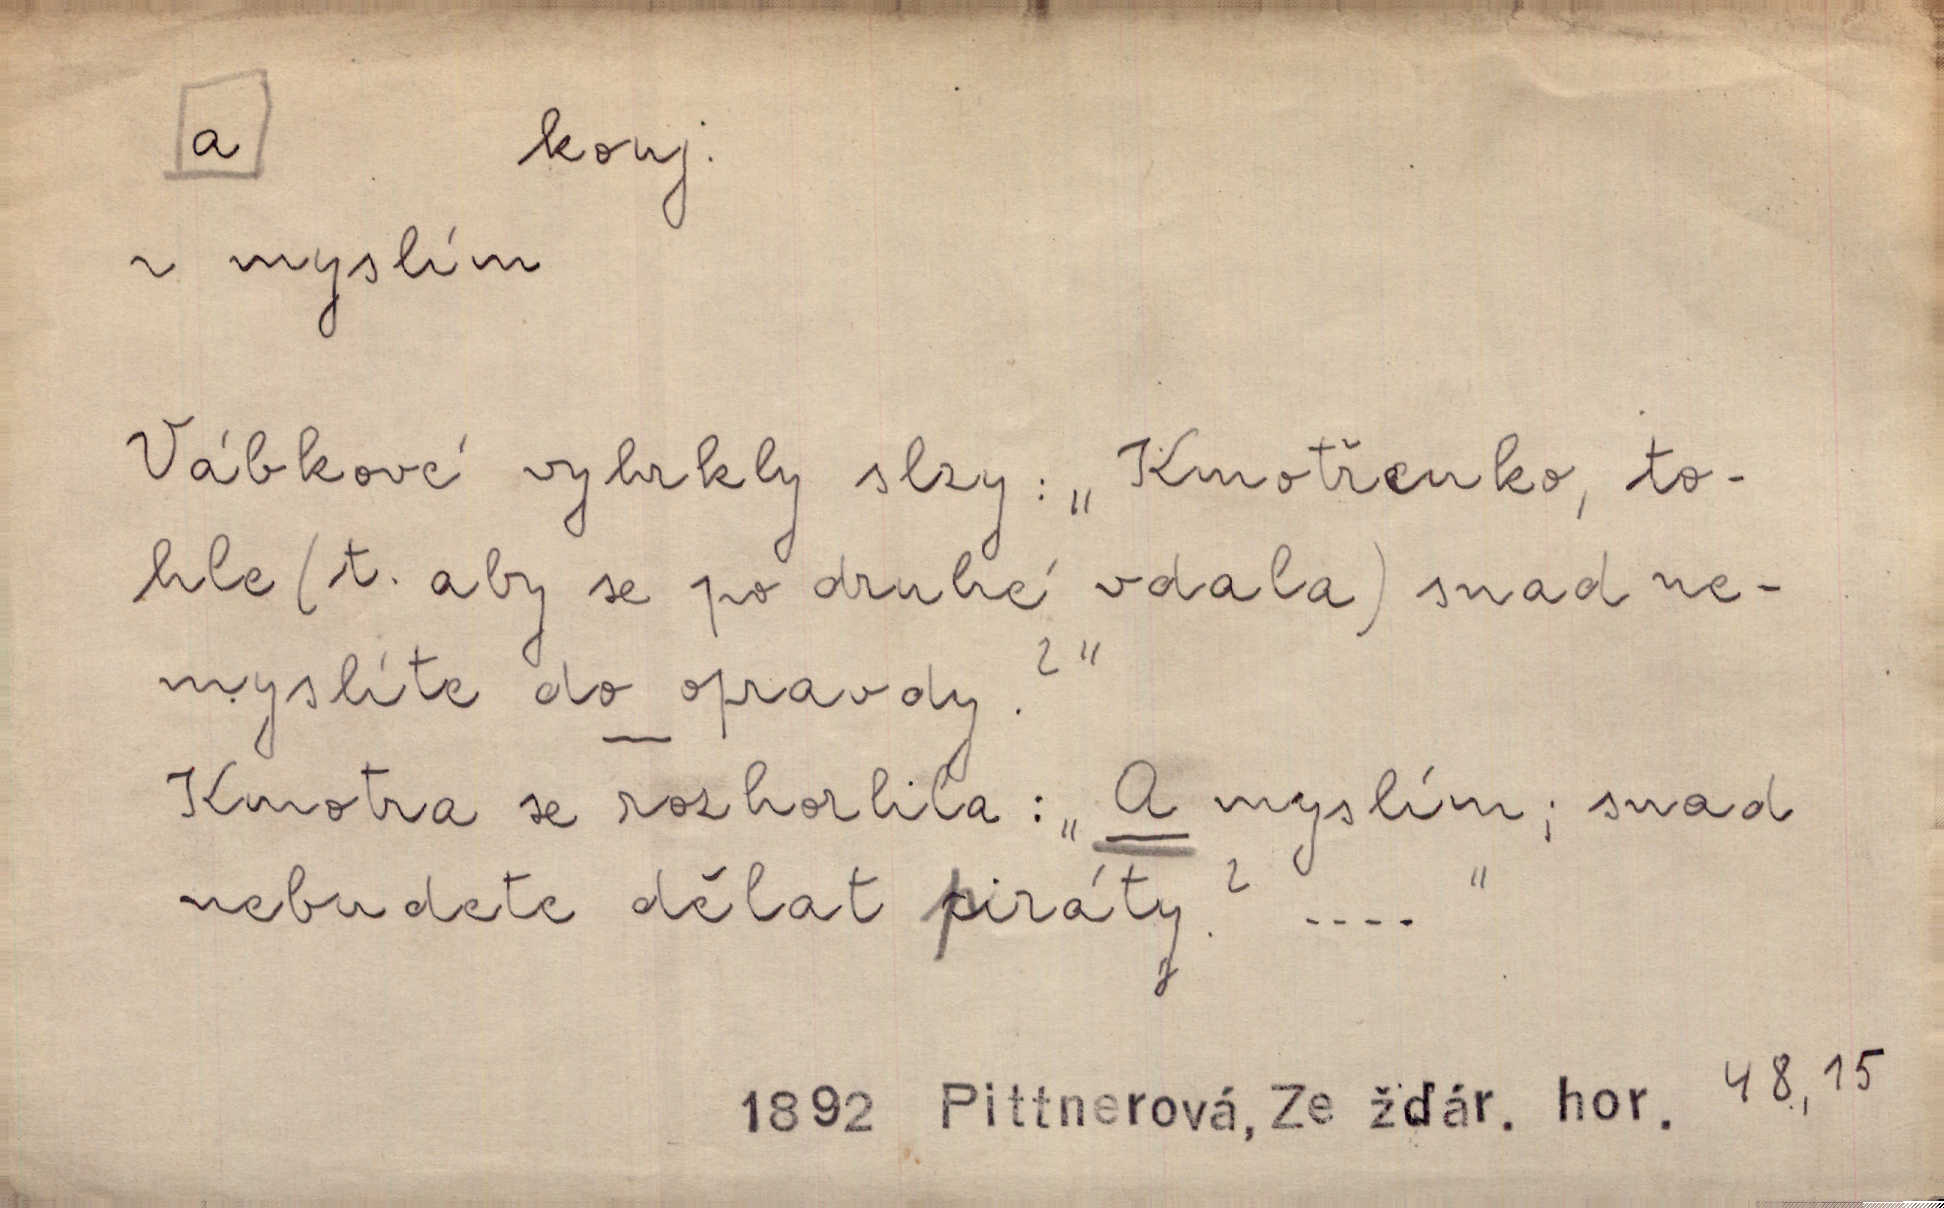 a konj.
~ myslím
Vábkové vyhrkly slzy: „Kmotřenko, to-
hle (t. aby se po druhé vdala) snad ne-
myslíte do opravdy?“
Kmotra se rozhorlila: „A myslím; snad
nebudete dělat piráty? ....“
1892 Pittnerová, Ze žďár. hor. 48,15